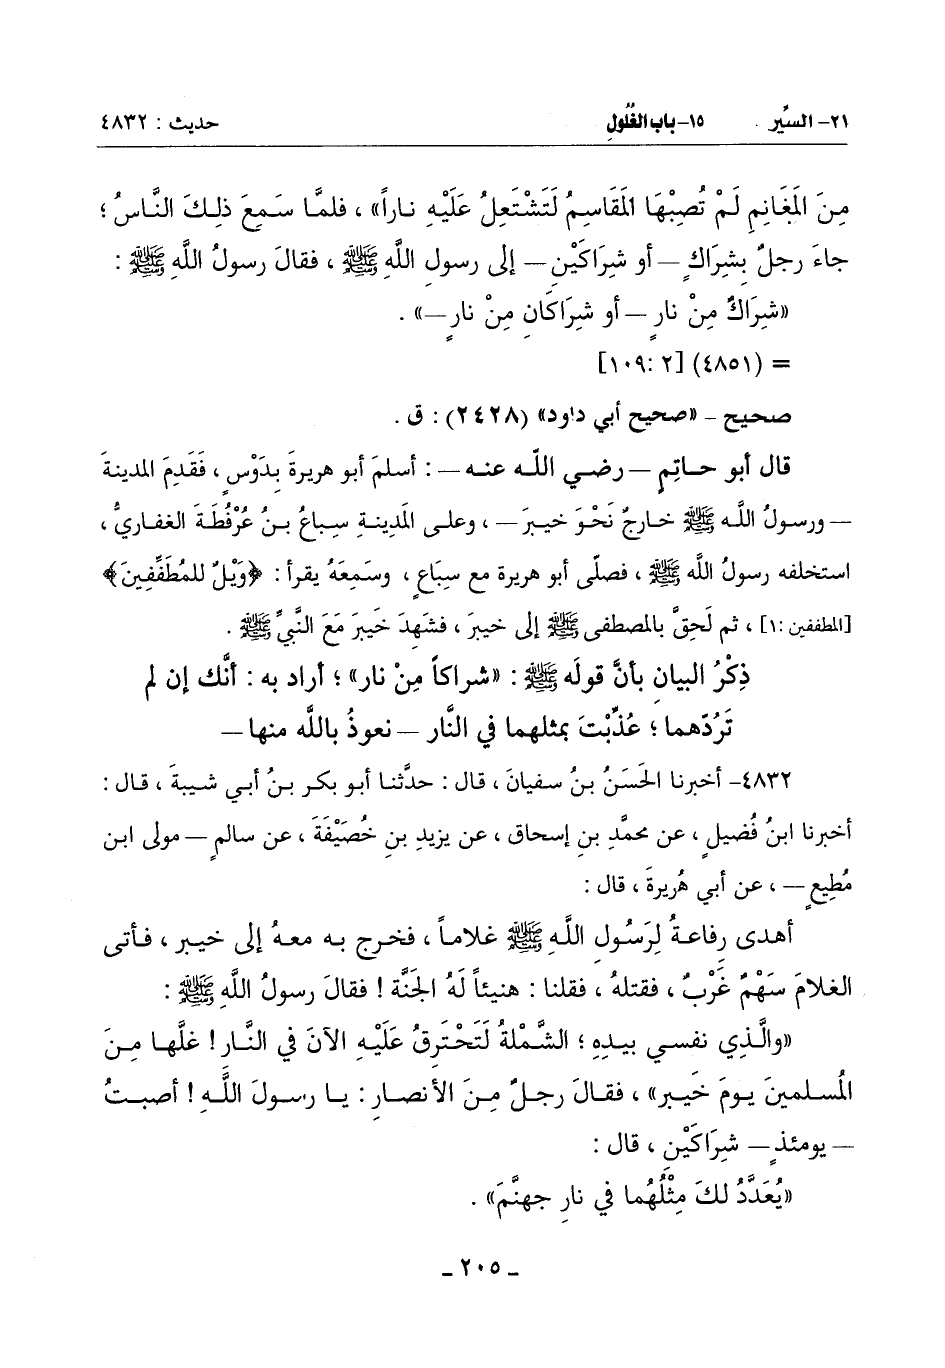 ٢١- السِّير . ١٥- باب الغُلُولِ حديث : ٤٨٣٢
مِنَ المَغَانِمِ لَمْ تُصِبْهَا المَقَاسِمُ لَتَشْتَعِلُ عَلَيْهِ ناراً» ، فلمَّا سَمِعَ ذلِكَ النَّاسُ ؛
جاءَ رجلٌ بِشِرَاكٍ – أو شِرَاكَيْنِ – إلى رسولِ اللَّهِ ﷺ ، فقالَ رسولُ اللَّهِ ﷺ :
«شِرَاكٌ مِنْ نارٍ – أو شِرَاكَانِ مِنْ نارٍ –» .
= (٤٨٥١) [٢ :١٠٩]
صحيح – «صحيح أبي داود» (٢٤٢٨) : ق .
قال أبو حاتِمٍ – رضي اللَّه عنه – : أسلمَ أبو هريرةَ بِدَوْسٍ ، فَقَدِمَ المدينةَ
– ورسولُ اللَّه ﷺ خارجٌ نَحْوَ خيبرَ – ، وعلى المَدِينةِ سِباعُ بنُ عُرْفُطَةَ الغفاريُّ ،
استخلفه رسولُ اللَّه ﷺ ، فصلَّى أبو هريرة مع سِبَاعٍ ، وسَمِعَهُ يقرأ : ﴿وَيْلٌ للمُطَفِّفِينَ﴾
[المطففين :١] ، ثم لَحِقَ بالمصطفى ﷺ إلى خيبرَ ، فشَهِدَ خَيبرَ مَعَ النَّبيِّ ﷺ .
ذِكْرُ البيان بأنَّ قولَه ﷺ : «شراكاً مِنْ نار» ؛ أراد به : أنَّك إن لم
تَرُدّهما ؛ عُذِّبْتَ بمثلهما في النَّار – نعوذُ بالله منها –
٤٨٣٢- أخبرنا الحَسَنُ بنُ سفيانَ ، قال : حدَّثنا أبو بكر بنُ أبي شيبةَ ، قال :
أخبرنا ابنُ فُضيلٍ ، عن محمَّدِ بنِ إسحاق ، عن يزيدِ بنِ خُصَيْفَةَ ، عن سالمٍ – مولى ابن
مُطِيعٍ – ، عن أبي هُريرةَ ، قال :
أهدى رِفاعةُ لِرَسُولِ اللَّهِ ﷺ غلاماً ، فخرج به معهُ إلى خيبر ، فأتى
الغلامَ سَهْمٌ غَرْبٌ ، فقتلهُ ، فقلنا : هنيئاً لَهُ الجَنَّة ! فقالَ رسولُ اللَّهِ ﷺ :
«والَّذِي نفسي بيدِهِ ؛ الشَّمْلةُ لَتَحْتَرِقُ عَلَيْهِ الآنَ في النَّارِ ! غلَّها مِنَ
المُسلمينَ يومَ خَيبرَ» ، فقالَ رجلٌ مِنَ الأنصارِ : يا رسولَ اللَّهِ ! أصبتُ
– يومئذٍ – شِرَاكَيْنِ ، قال :
«يُعَدَّدُ لكَ مِثْلُهُما في نارِ جهنَّمَ» .
- ٢٠٥ -